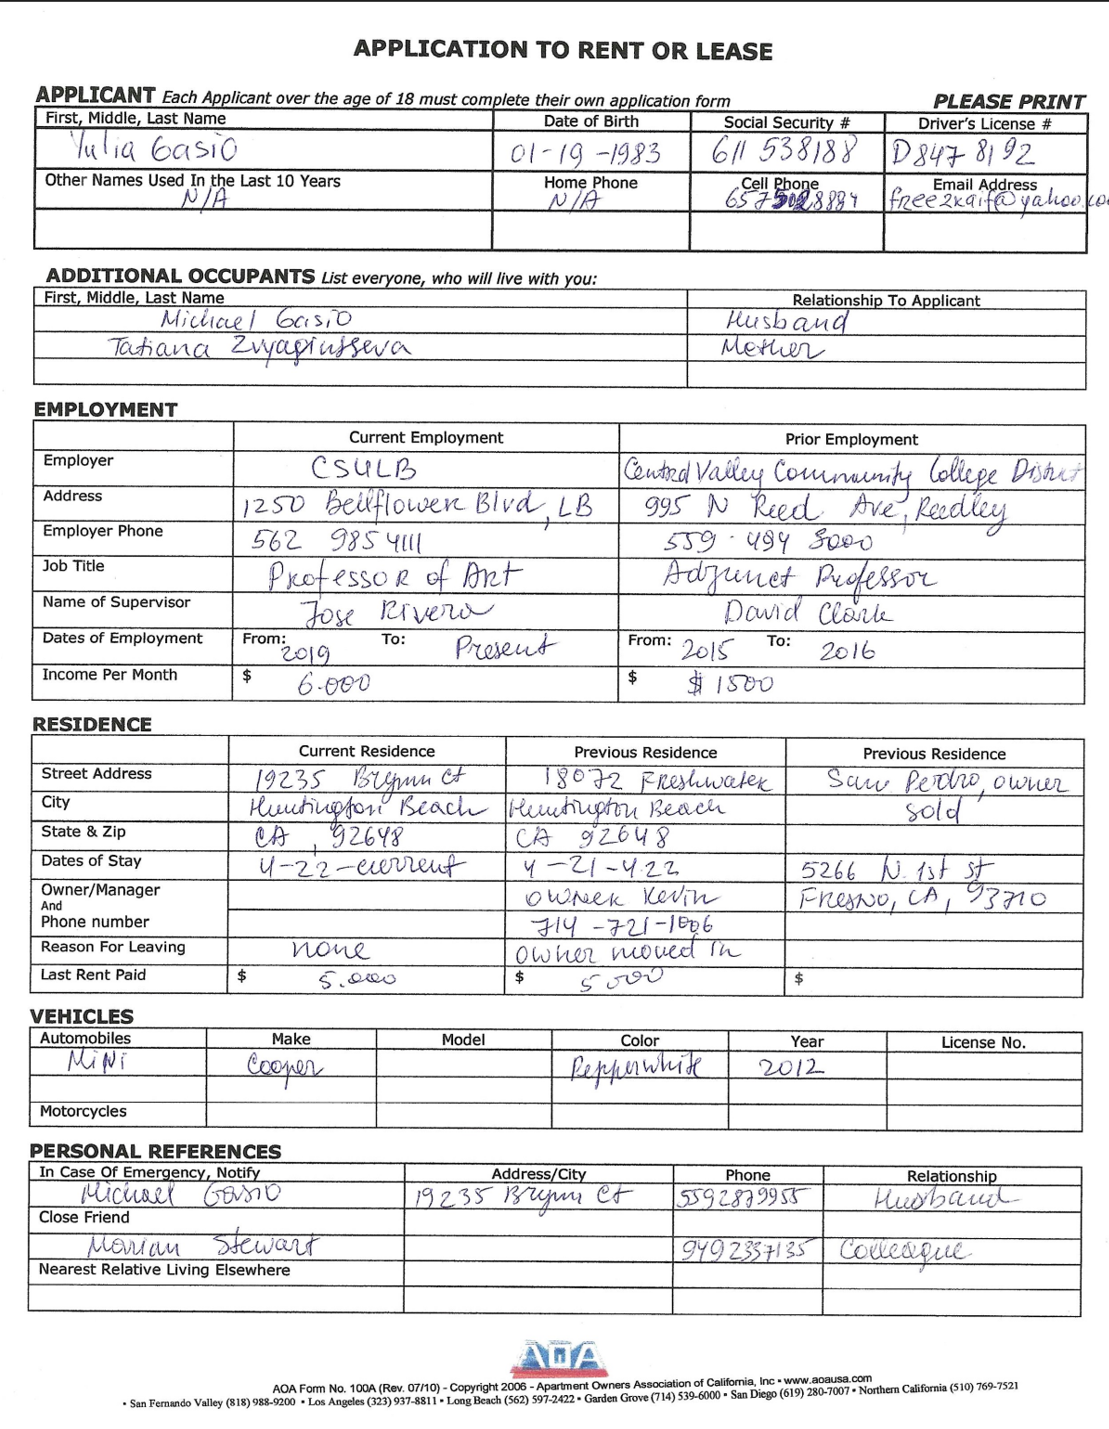 APPLICATION TO RENT OR LEASE
APPLICANT Each Applicant over the age of 18 must complete their own application form PLEASE PRINT
First, Middle, Last Name Date of Birth Social Security # Driver's License #
Yulia Gasio 01-19-1983 611 538188 D847 8192
Other Names Used In the Last 10 Years Home Phone Cell Phone Email Address
N/A N/A free2kaif@yahoo.co
ADDITIONAL OCCUPANTS List everyone, who will live with you:
First, Middle, Last Name Relationship To Applicant
Michael Gasio Husband
Tatiana Mother
EMPLOYMENT
Current Employment Prior Employment
Employer CSULB Central Valley Community College District
Address 1250 Bellflower Blvd, LB 995 N Reed Ave, Reedley
Employer Phone 562 985 4111 559-494 3000
Job Title Professor of Art Adjunct Professor
Name of Supervisor Jose Rivera David Clark
Dates of Employment From: 2019 To: Present From: 2015 To: 2016
Income Per Month $ 6.000 $ $ 1500
RESIDENCE
Current Residence Previous Residence Previous Residence
Street Address 19235 Brynn Ct 18072 Freshwater San Perdro, owner
City Huntington Beach Huntington Beach sold
State & Zip CA, 92648 CA 92648
Dates of Stay 4-22-current 4-21-4.22 5266 N. 1st St
Owner/Manager owner Kevin Fresno, CA, 93710
And
Phone number 714-721-1006
Reason For Leaving none owner moved in
Last Rent Paid $ 5.000 $ 5000 $
VEHICLES
Automobiles Make Model Color Year License No.
MiNi Cooper Pepperwhite 2012
Motorcycles
PERSONAL REFERENCES
In Case Of Emergency, Notify Address/City Phone Relationship
Michael Gasio 19235 Brynn Ct 5592879955 Husband
Close Friend
Marian Stewart 9492337135 Colleague
Nearest Relative Living Elsewhere
AOA
AOA Form No. 100A (Rev. 07/10) - Copyright 2006 - Apartment Owners Association of California, Inc • www.aoausa.com
• San Fernando Valley (818) 988-9200 • Los Angeles (323) 937-8811 • Long Beach (562) 597-2422 • Garden Grove (714) 539-6000 • San Diego (619) 280-7007 • Northern California (510) 769-7521